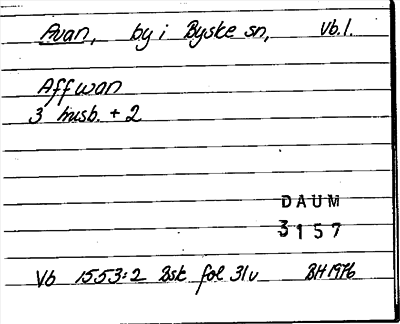 Avan, by i Byske sn, Vb.l.
Affwan
3 husb. + 2
DAUM
3157
Vb 1553:2 Bsk fol 31v BH 1976